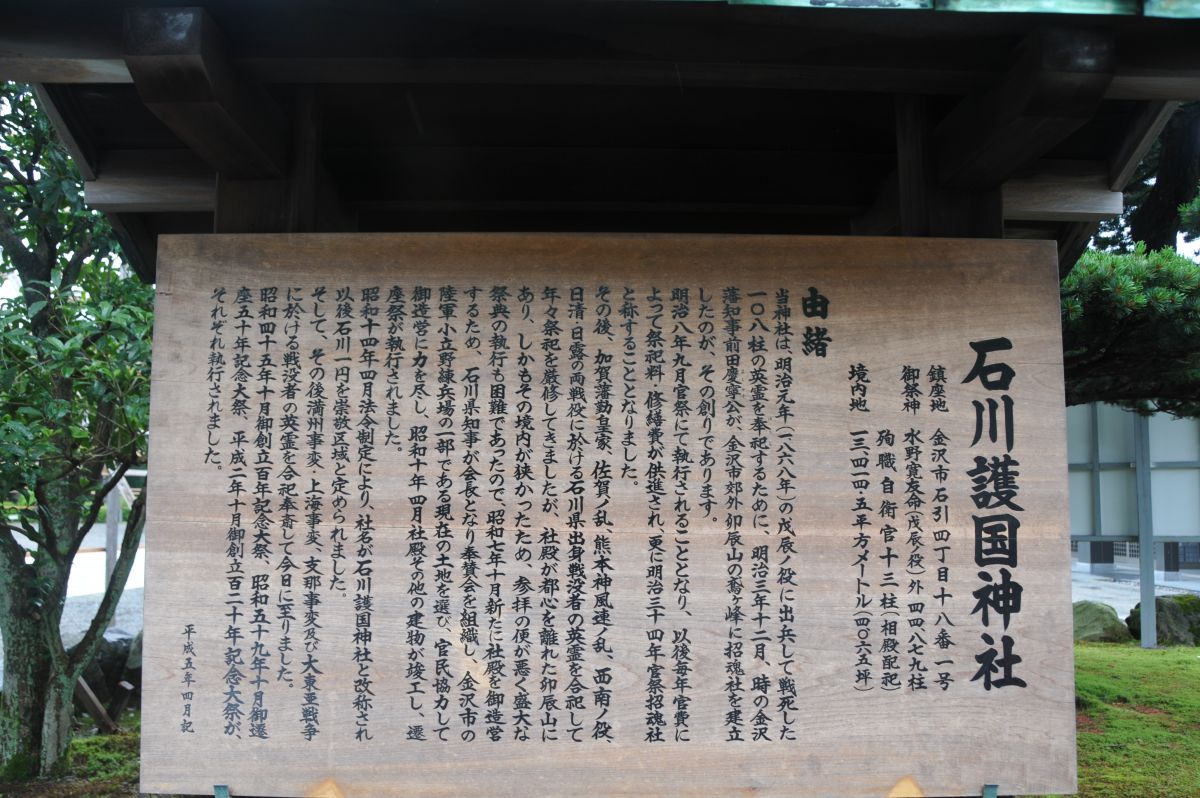 石川護国神社
鎮座地 金沢市石引四丁目十八番一号
御祭神 水野寛友命(戊辰ノ役)外四四八七九柱
殉職自衛官十三柱(相殿配祀)
境内地 一三、四一四・五平方メートル(四、〇六五坪)
由緒
当神社は、明治元年(一八六八年)の戊辰ノ役に出兵して戦死した
一〇八柱の英霊を奉祀するために、明治三年十二月、時の金沢
藩知事前田慶寧公が、金沢市郊外卯辰山の鳶ヶ峰に招魂社を建立
したのが、その創りであります。
明治八年九月官祭にて執行されることとなり、以後毎年官費に
よって祭祀料・修繕費が供進され、更に明治三十四年官祭招魂社
と称することとなりました。
その後、加賀藩勤皇家、佐賀ノ乱、熊本神風連ノ乱、西南ノ役、
日清・日露の両戦役に於ける石川県出身戦没者の英霊を合祀して
年々祭祀を厳修してきましたが、社殿が都心を離れた卯辰山に
あり、しかもその境内が狭かったため、参拝の便が悪く盛大な
祭典の執行も困難であったので、昭和七年十月新たに社殿を御造営
するため、石川県知事が会長となり奉賛会を組織し、金沢市の
陸軍小立野練兵場の一部である現在の土地を選び、官民協力して
御造営に力を尽し、昭和十年四月社殿その他の建物が竣工し、遷
座祭が執行されました。
昭和十四年四月法令制定により、社名が石川護国神社と改称され
以後石川一円を崇敬区域と定められました。
そして、その後満州事変・上海事変、支那事変及び大東亜戦争
に於ける戦没者の英霊を合祀奉斎して今日に至りました。
昭和四十五年十月御創立百年記念大祭、昭和五十九年十月御遷
座五十年記念大祭、平成二年十月御創立百二十年記念大祭が、
それぞれ執行されました。
平成五年四月記